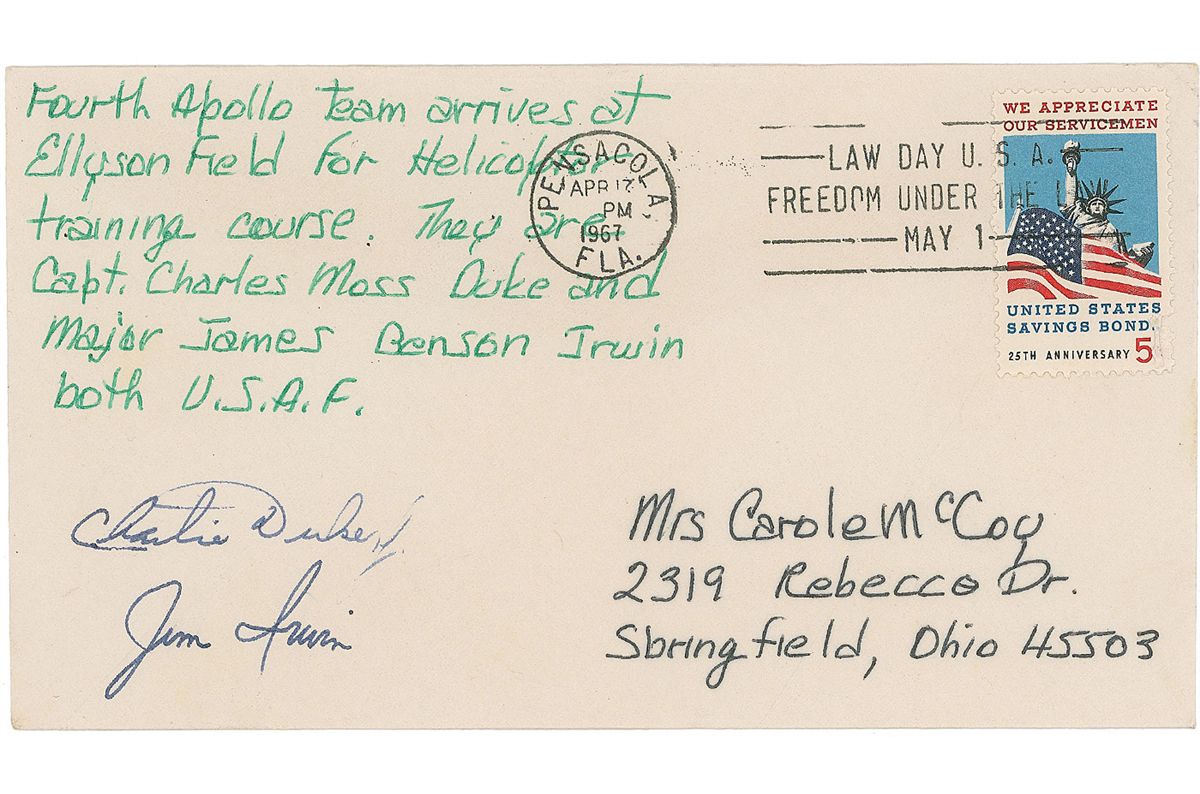 Fourth Apollo Team arrives at
Ellyson Field for Helicoptor
training course. They are
Capt. Charles Moss Duke and
Major James Benson Irwin
both U.S.A.F.
PENSACOLA,
APR 17
PM
1967
FLA.
LAW DAY U. S. A.
FREEDOM UNDER THE LAW
MAY 1
WE APPRECIATE
OUR SERVICEMEN
UNITED STATES
SAVINGS BOND.
25TH ANNIVERSARY 5
Charlie Duke Jr.
Jim Irwin
Mrs Carole McCoy
2319 Rebecca Dr.
Springfield, Ohio 45503